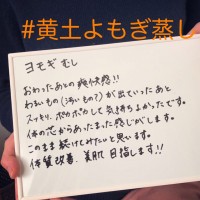 #黄土よもぎ蒸し
ヨモギむし
おわったあとの爽快感!!
わるいもの(汚いもの?)が出ていったあと
スッキリ、ポカポカして気持ちよかったです。
体の芯からあったまった感じがします。
このまま続けてみたいと思います。
体質改善、美肌目指します!!